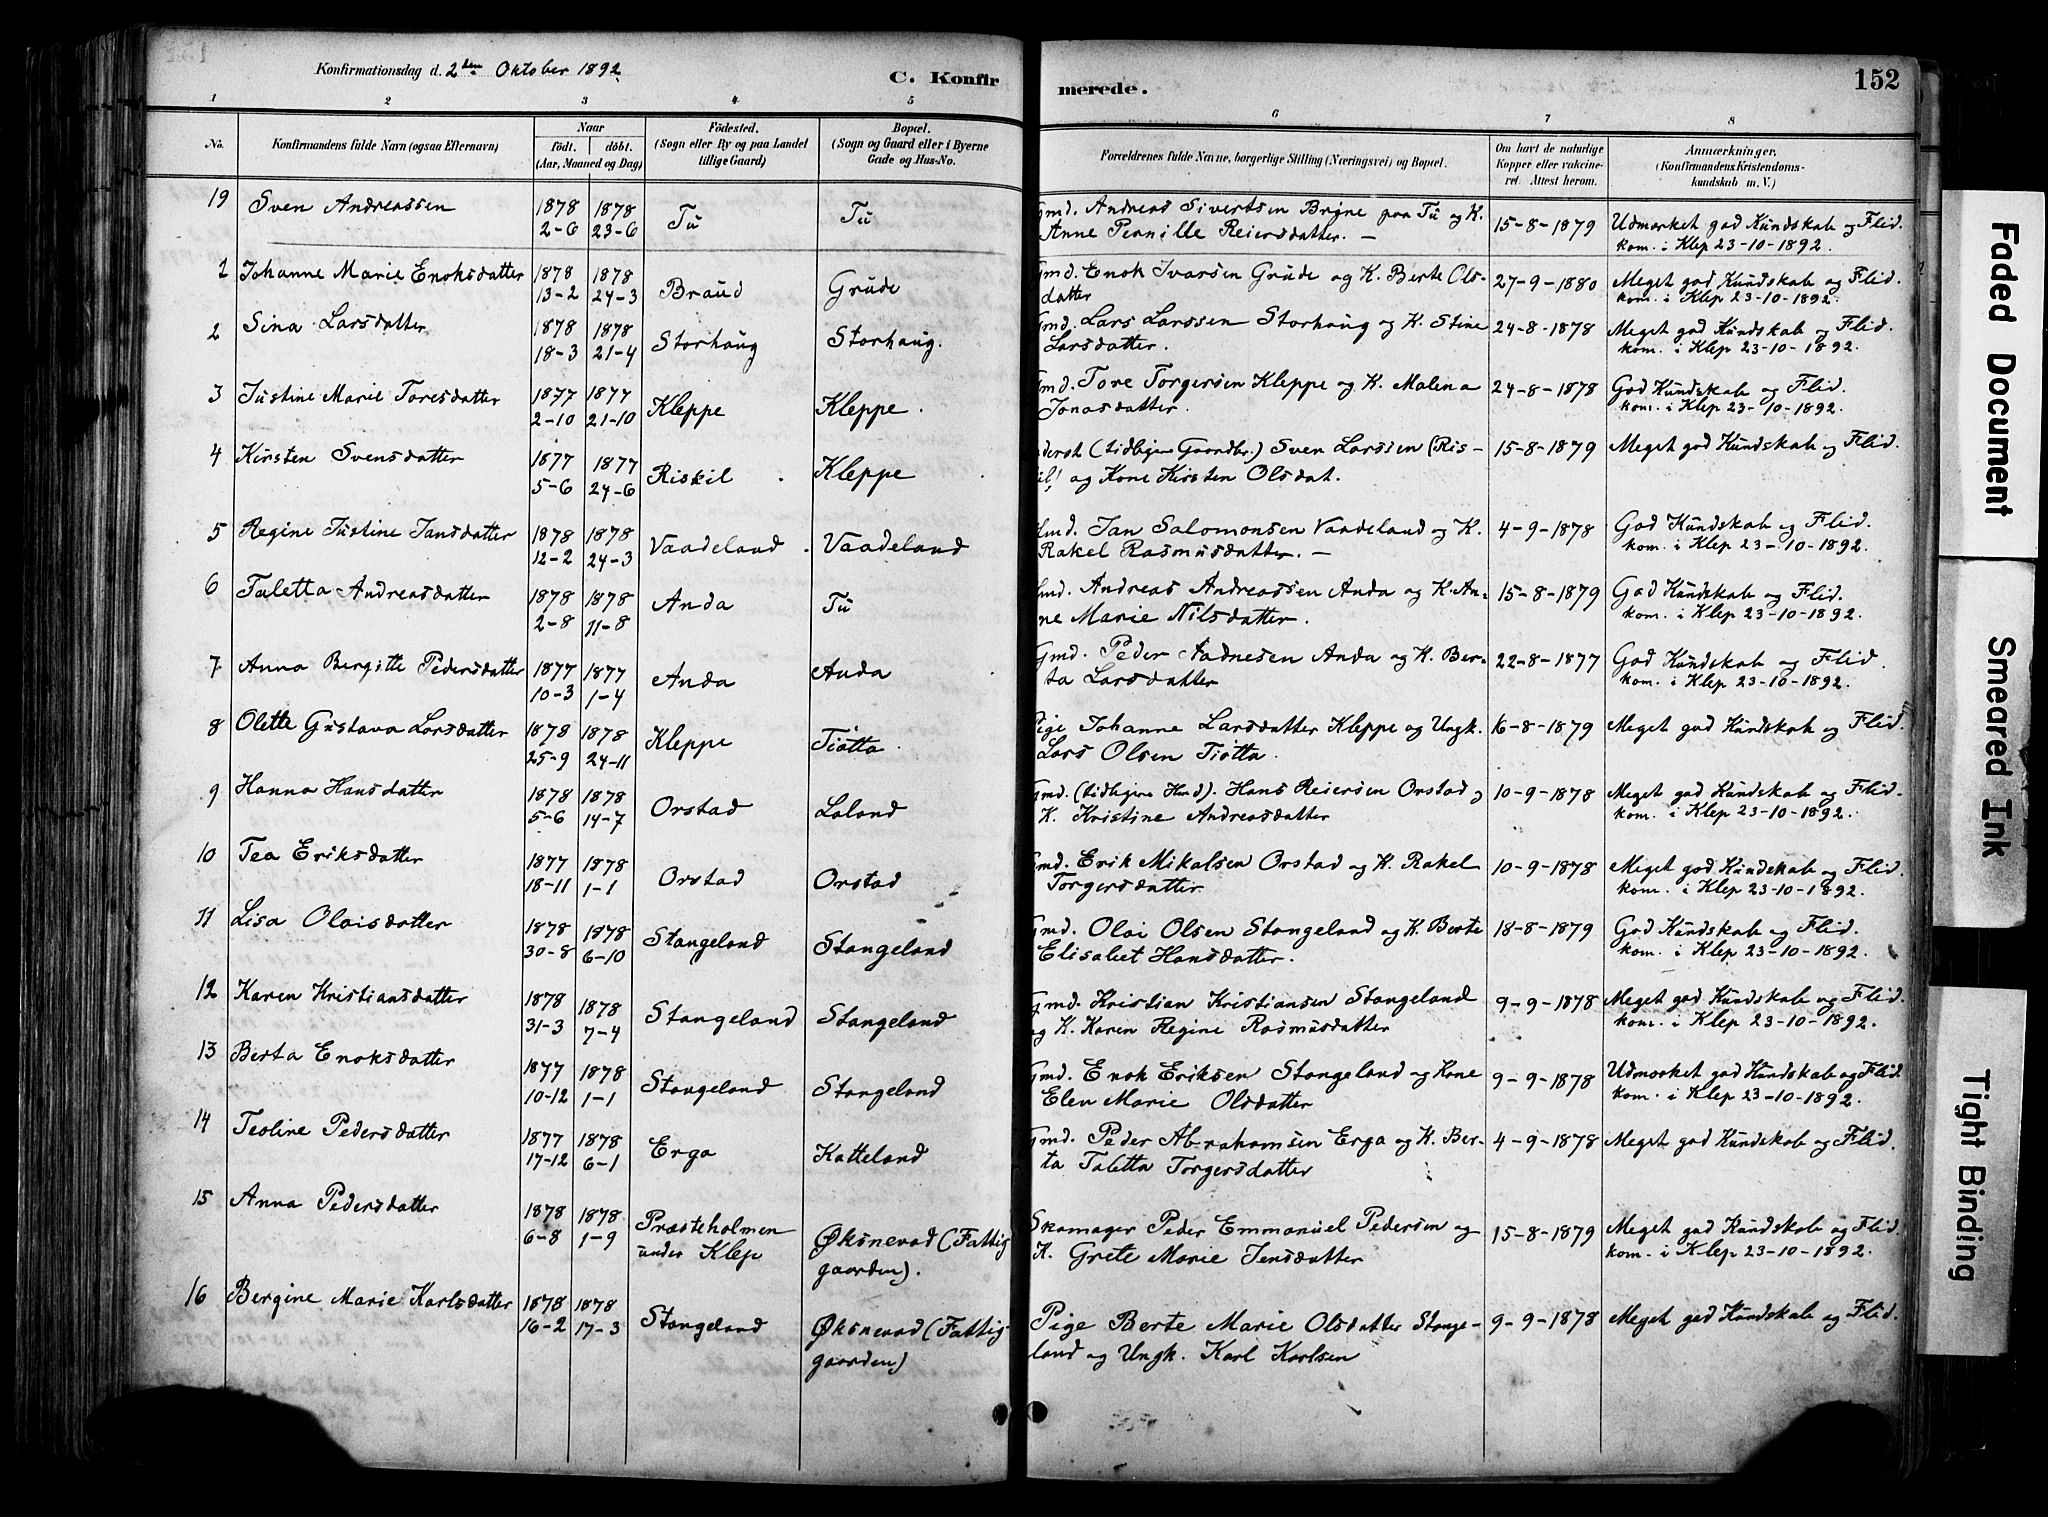 Konfirmationsdag d. 2den Oktober 1892.
C. Konfir
merede.
152
1 2 3 4 5 6 7 8
No.
Konfirmandens fulde Navn (ogsaa Efternavn)
Naar
født. døbt.
(Aar, Maaned og Dag)
Fødested.
(Sogn eller By og paa Landet
tillige Gaard)
Bopæl.
(Sogn og Gaard eller i Byerne
Gade og Hus-No.
Forældrenes fulde Navne, borgerlige Stilling (Næringsvei) og Bopæl.
Om havt de naturlige
Kopper eller vakcine-
ret. Attest herom.
Anmærkninger.
(Konfirmandens Kristendoms-
kundskab m. V.)
19 Sven Andreassen 1878 1878 Tu Tu Gmd. Andreas Sivertsen Bryne paa Tu og K. 15-8-1879 Udmærket god Kundskab og Flid.
2-6 23-6 Anne Pernille Reiersdatter. — kom. i Klep 23-10-1892.
1 Johanne Marie Enoksdatter 1878 1878 Braud Grude Gmd. Enok Ivarsen Grude og K. Berte Ols- 27-9-1880 Meget god Kundskab og Flid.
13-2 24-3 datter kom. i Klep 23-10-1892.
2 Sina Larsdatter 1878 1878 Storhaug Storhaug. Gmd. Lars Larssen Storhaug og K. Stine 24-8-1878 Meget god Kundskab og Flid.
18-3 21-4 Larsdatter. kom. i Klep 23-10-1892.
3 Justine Marie Toresdatter 1877 1877 Kleppe Kleppe. Gmd. Tore Torgersen Kleppe og K. Malena 24-8-1878 God Kundskab og Flid.
2-10 21-10 Jonasdatter. kom. i Klep 23-10-1892.
4 Kirsten Svensdatter 1877 1877 Riskil Kleppe (tidligere Gaardbr.) Sven Larssen (Ris- 15-8-1879 Meget god Kundskab og Flid.
5-6 24-6 og Kone Kirsten Olsdat.
5 Regine Justine Jansdatter 1878 1878 Vaadeland Vaadeland Hmd. Jan Salomonsen Vaadeland og K. 4-9-1878 God Kundskab og Flid.
12-2 24-3 Rakel Rasmusdatter. — kom. i Klep 23-10-1892.
6 Taletta Andreasdatter 1878 1878 Anda Tu Hmd. Andreas Andreassen Anda og K. An- 15-8-1879 God Kundskab og Flid.
2-8 11-8 ne Marie Nilsdatter. kom. i Klep 23-10-1892.
7 Anna Bergitte Pedersdatter 1877 1877 Anda Anda Gmd. Peder Aadnesen Anda og K. Ber- 22-8-1877 God Kundskab og Flid.
10-3 1-4 ta Larsdatter kom. i Klep 23-10-1892.
8 Olette Gustava Larsdatter 1878 1878 Kleppe Tiøtta. Pige Johanne Larsdatter Kleppe og Ungk. 16-8-1879 Meget god Kundskab og Flid.
25-9 24-11 Lars Olsen Tiøtta.
9 Hanna Hansdatter 1878 1878 Orstad Laland Gmd. (tidligere Hmd). Hans Reiersen Orstad og 10-9-1878 Meget god Kundskab og Flid.
5-6 14-7 K. Kristine Andreasdatter kom. i Klep 23-10-1892.
10 Tea Eriksdatter 1877 1878 Orstad Orstad Gmd. Erik Mikalsen Orstad og K. Rakel 10-9-1878 Meget god Kundskab og Flid.
18-11 1-1 Torgersdatter kom. i Klep 23-10-1892.
11 Lisa Olaisdatter 1878 1878 Stangeland Stangeland Gmd. Olai Olsen Stangeland og K. Berte 18-8-1879 God Kundskab og Flid.
30-8 6-10 Elisabet Hansdatter. kom. i Klep 23-10-1892.
12 Karen Kristiansdatter 1878 1878 Stangeland Stangeland Gmd. Kristian Kristiansen Stangeland 9-9-1878 Meget god Kundskab og Flid.
31-3 7-4 og K. Karen Regine Rasmusdatter kom. i Klep 23-10-1892.
13 Berta Enoksdatter 1877 1878 Stangeland Stangeland Gmd. Enok Eriksen Stangeland og Kone 9-9-1878 Udmærket god Kundskab og Flid.
10-12 1-1 Elen Marie Olsdatter kom. i Klep 23-10-1892.
14 Teoline Pedersdatter 1877 1878 Erga Katteland Gmd. Peder Abrahamsen Erga og K. Ber- 4-9-1878 Meget god Kundskab og Flid.
17-12 6-1 ta Taletta Torgersdatter
15 Anna Pedersdatter 1878 1878 Præsteholmen Øksnevad (Fattig Skomager Peder Emmanuel Pedersen og 15-8-1879 Meget god Kundskab og Flid
6-8 1-9 under Klep gaarden). K. Grete Marie Jensdatter kom. i Klep 23-10-1892.
16 Bergine Marie Karlsdatter 1878 1878 Stangeland Øksnevad (Fattig- Pige Berte Marie Olsdatter Stange- 9-9-1878 Meget god Kundskab og Flid.
16-2 17-3 gaarden) land og Ungk. Karl Karlsen
Faded Document
Smeared Ink
Tight Binding